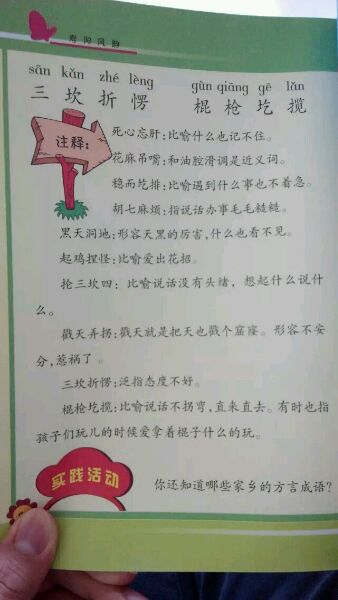 寿阳风韵
sān kǎn zhé lèng gùn qiāng gē lǎn
三坎折愣 棍枪圪揽
注释:
死心忘肝:比喻什么也记不住。
花麻吊嘴:和油腔滑调是近义词。
稳而圪排:比喻遇到什么事也不着急。
胡七麻烦:指说话办事毛毛糙糙。
黑天洞地:形容天黑的厉害,什么也看不见。
起鸡捏怪:比喻爱出花招。
抡三坎四:比喻说话没有头绪,想起什么说什
么。
戳天弄拐:戳天就是把天也戳个窟窿。形容不安
分,惹祸了。
三坎折愣:泛指态度不好。
棍枪圪揽:比喻说话不拐弯,直来直去。有时也指
孩子们玩儿的时候爱拿着棍子什么的玩。
实践活动
你还知道哪些家乡的方言成语?